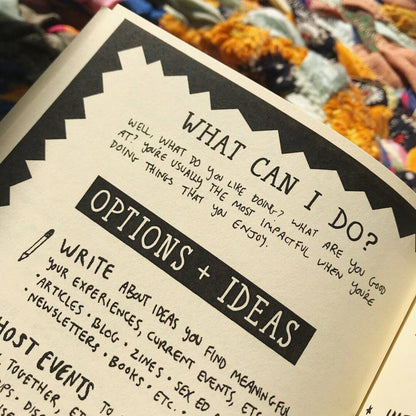 WHAT CAN I DO?
WELL, WHAT DO YOU LIKE DOING? WHAT ARE YOU GOOD
AT? YOU'RE USUALLY THE MOST IMPACTFUL WHEN YOU'RE
DOING THINGS THAT YOU ENJOY.
OPTIONS + IDEAS
WRITE ABOUT IDEAS YOU FIND MEANINGFUL
YOUR EXPERIENCES, CURRENT EVENTS, ETC.
• ARTICLES • BLOG • ZINES • SEX ED
• NEWSLETTERS • BOOKS • ETC..
HOST EVENTS TO
TOGETHER, ET